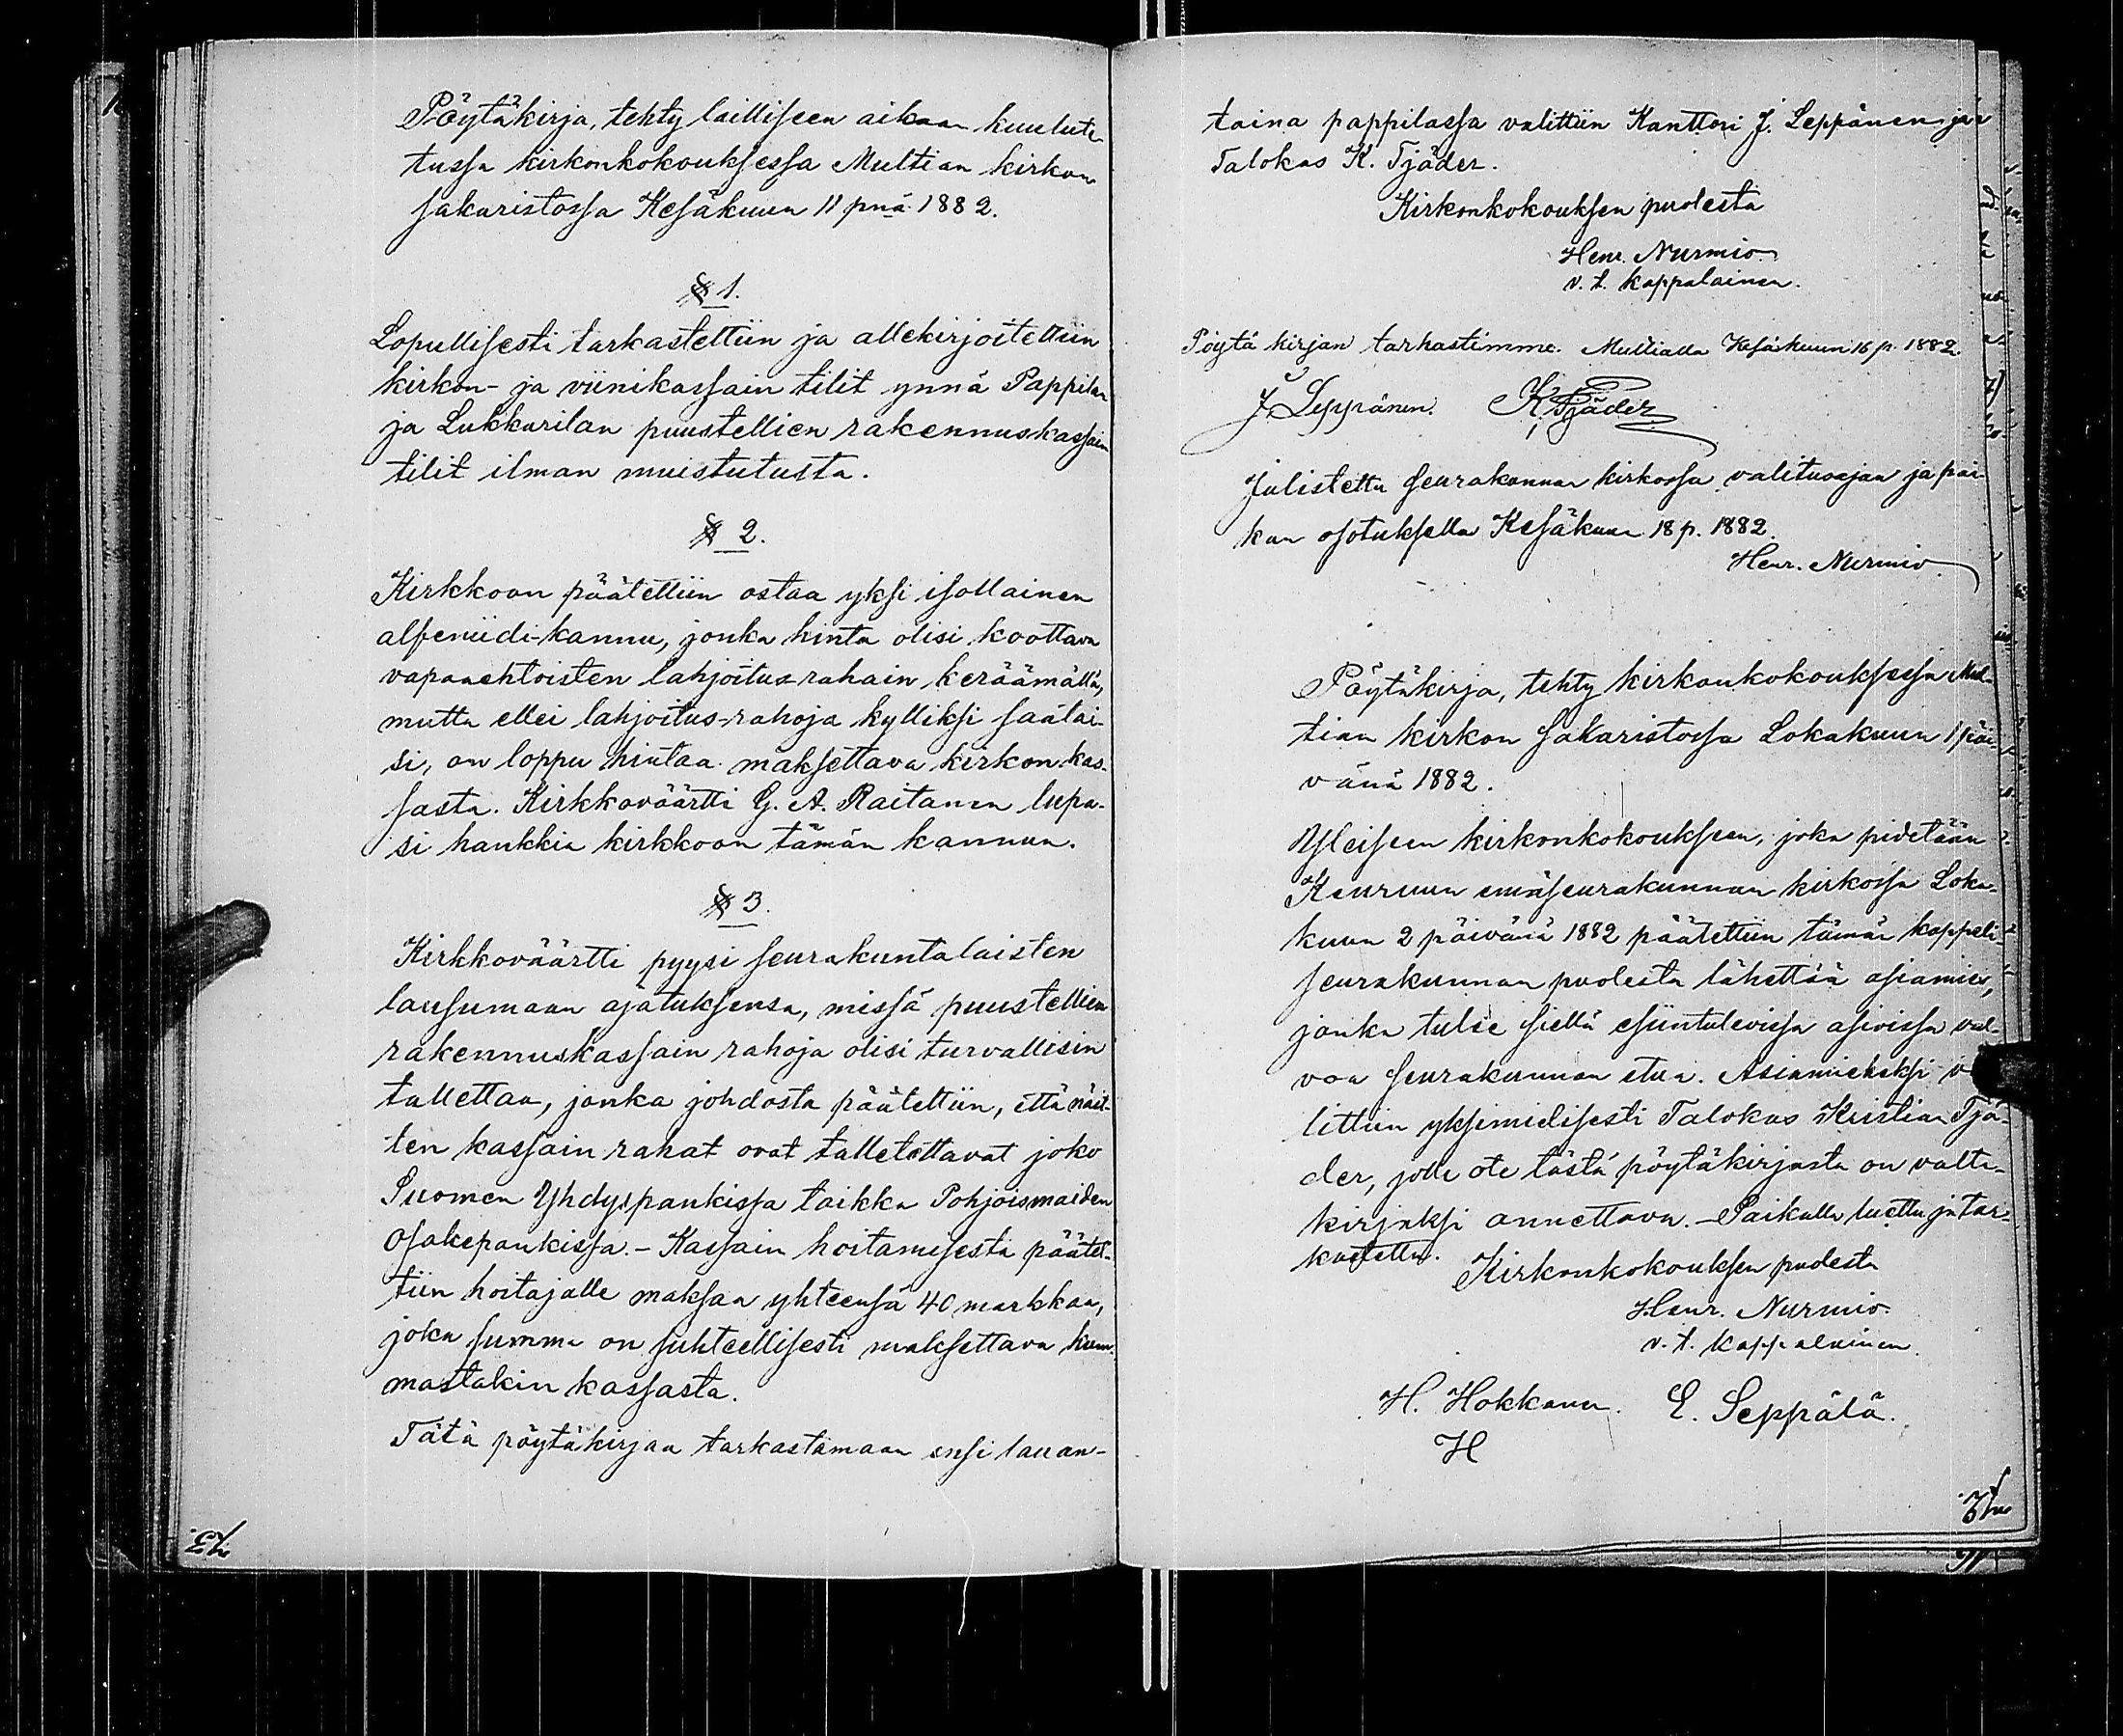 Pöytäkirja, tehty lailliseen aikaan kuulute-
tussa kirkonkokouksessa Multian kirkon
sakaristossa Kesäkuun 11 pnä 1882.
§ 1.
Lopullisesti tarkastettiin ja allekirjoitettiin
kirkon- ja viinikassain tilit ynnä Pappilan
ja Lukkarilan puustellien rakennuskassain
tilit ilman muistutusta.
§ 2.
Kirkkoon päätettiin ostaa yksi isollainen
alfeniidi-kannu, jonka hinta olisi koottava
vapaaehtoisten lahjoitus-rahain keräämällä,
mutta ellei lahjoitus-rahoja kylliksi saatai-
si, on loppu hintaa maksettava kirkon kas-
sasta. Kirkkoväärtti G. A. Raitanen lupa-
si hankkia kirkkoon tämän kannun.
§ 3.
Kirkkoväärtti pyysi seurakuntalaisten
lausumaan ajatuksensa, missä puustellien
rakennuskassain rahoja olisi turvallisin
tallettaa, jonka johdosta päätettiin, että näit-
ten kassain rahat ovat talletettavat joko
Suomen Yhdyspankissa taikka Pohjoismaiden
Osakepankissa. - Kassain hoitamisesta päätet-
tiin hoitajalle maksaa yhteensä 40 markkaa,
joka summa on suhteellisesti maksettava kum-
mastakin kassasta.
Tätä pöytäkirjaa tarkastamaan ensi lauan-
73.
taina pappilassa valittiin Kanttori J. Leppänen ja
Talokas K. Tjäder.
Kirkonkokouksen puolesta
Henr. Nurmio
v. t. kappalainen.
Pöytä kirjan tarkastimme. Multialla Kesäkuun 16 p. 1882.
J. Leppänen. K Tjäder
Julistettu seurakunnan kirkossa valitusajan ja pai-
kan osotuksella Kesäkuun 18 p. 1882.
Henr. Nurmio
Pöytäkirja, tehty kirkonkokouksessa Mul-
tian kirkon sakaristossa Lokakuun 1 päi-
vänä 1882.
Yleiseen kirkonkokoukseen, joka pidetään
Keuruun emäseurakunnan kirkossa Loka-
kuun 2 päivänä 1882 päätettiin tämän kappeli
seurakunnan puolesta lähettää asiamies,
jonka tulee siellä esiintulevissa asioissa val-
voa seurakunnan etua. Asiamieheksi va
littiin yksimielisesti Talokas Kristian Tjä-
der, jolle ote tästä pöytäkirjasta on valta-
kirjaksi annettava. - Paikalla luettu ja tar-
kastettu.
Kirkonkokouksen puolesta
Henr. Nurmio.
v. t. kappalainen.
H. Hokkanen. E. Seppälä.
H